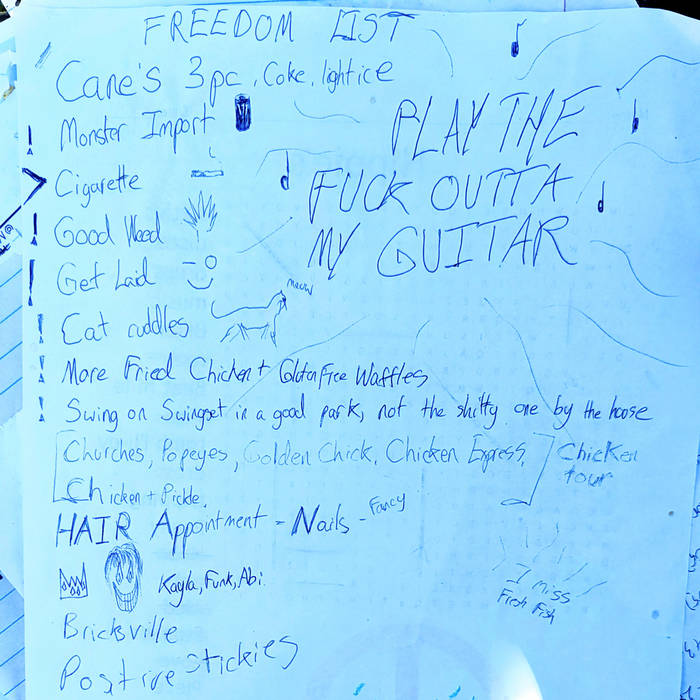 FREEDOM LIST
Cane's 3pc, Coke, light ice
Monster Import
Cigarette
Good Weed
Get Laid
meow
Cat cuddles
PLAY THE
FUCK OUTTA
MY GUITAR
More Fried Chicken + Gluten Free Waffles
Swing on Swingset in a good park, not the shitty one by the house
Churches, Popeyes, Golden Chick, Chicken Express,
Chicken + Pickle,
Chicken
tour
HAIR Appointment - Nails - Fancy
Kayla, Funk, Abi
I miss
Fresh Fish
Bricksville
Positive Stickies